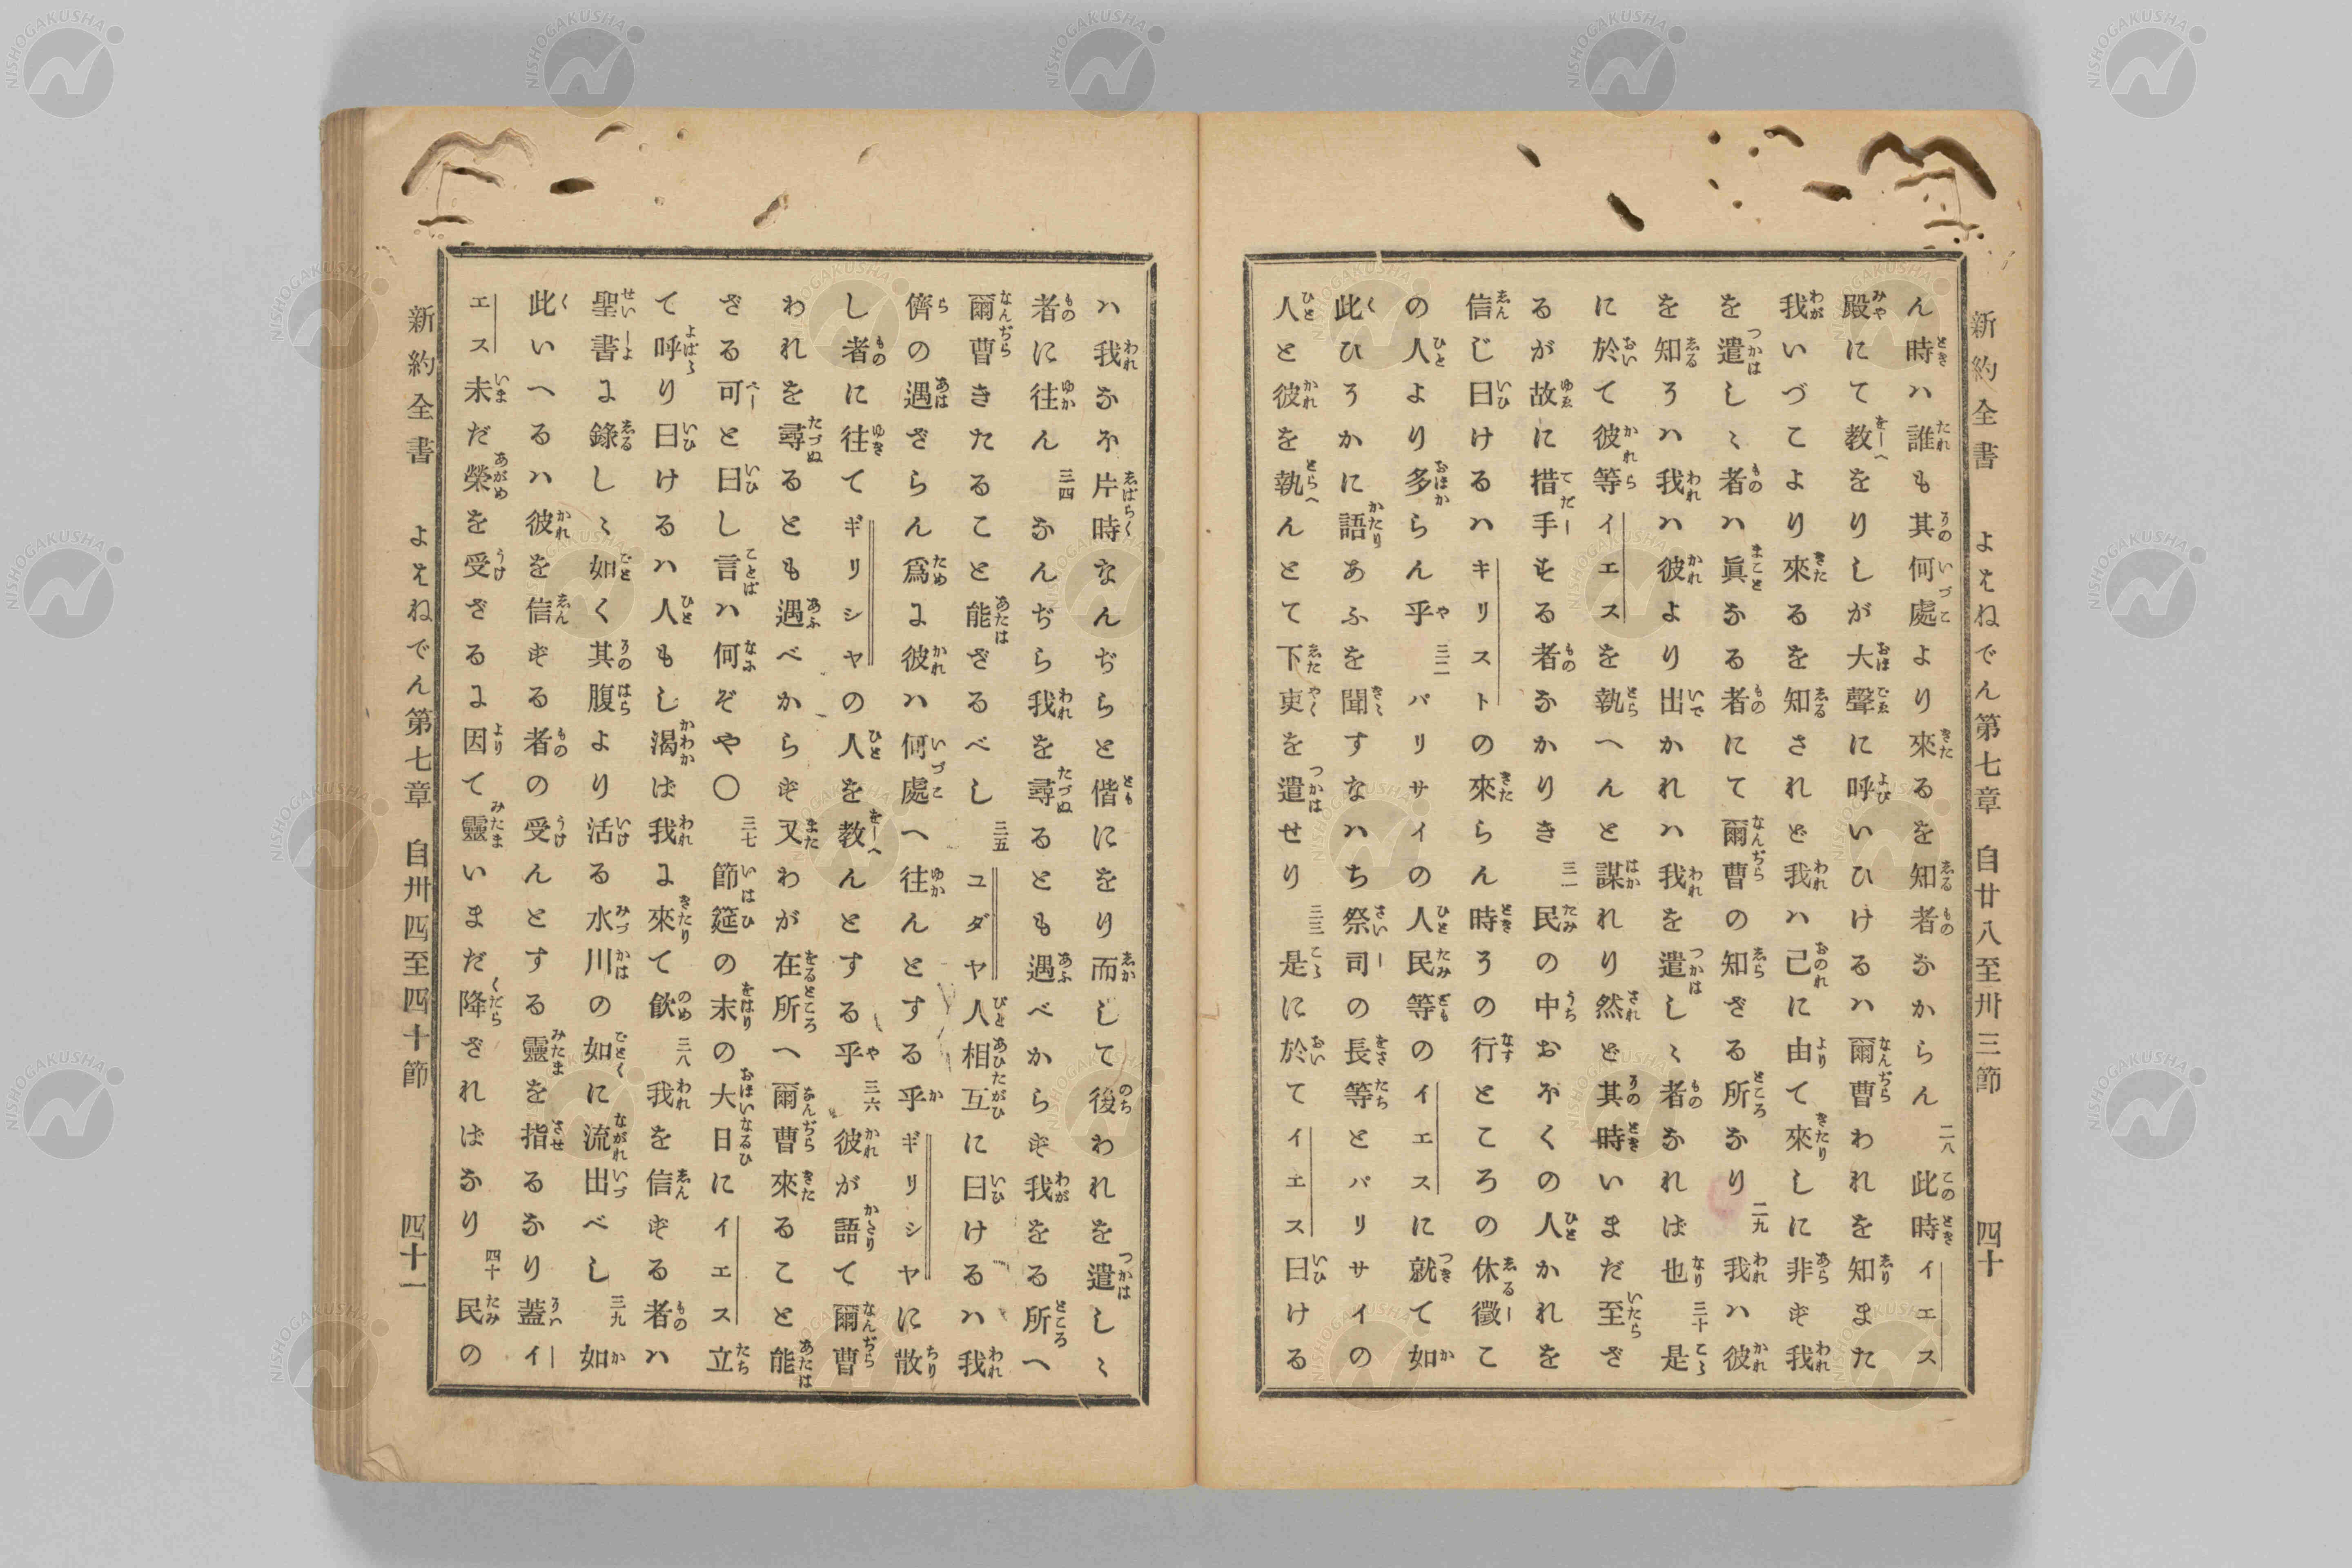 新約全書 よはねでん第七章 自廿八至卅三節 四十
ん時ハ誰も其何處より來るを知者なからん 二八 此時イエス
殿にて教をりしが大聲に呼いひけるハ爾曹われを知また
我いづこより來るを知されど我ハ己に由て來しに非ず我
を遣しゝ者ハ眞なる者にて爾曹の知ざる所なり 二九 我ハ彼
を知ろハ我ハ彼より出かれハ我を遣しゝ者なれば也 三十 是
に於て彼等イエスを執へんと謀れり然ど其時いまだ至ざ
るが故に措手する者なかりき 三一 民の中おほくの人かれを
信じ曰けるハキリストの來らん時その行ところの休徵こ
の人より多らん乎 三二 パリサイの人民等のイエスに就て如
此ひろかに語あふを聞すなハち祭司の長等とパリサイの
人と彼を執んとて下吏を遣せり 三三 是に於てイエス曰ける
ハ我なほ片時なんぢらと偕にをり而して後われを遣しゝ
者に往ん 三四 なんぢら我を尋るとも遇べからず我をる所へ
爾曹きたること能ざるべし 三五 ユダヤ人相互に曰けるハ我
儕の遇ざらん爲に彼ハ何處へ往んとする乎ギリシヤに散
し者に往てギリシヤの人を教んとする乎 三六 彼が語て爾曹
われを尋るとも遇べからず又わが在所へ爾曹來ること能
ざる可と曰し言ハ何ぞや〇 三七 節筵の末の大日にイエス立
て呼り曰けるハ人もし渴ば我に來て飮め 三八 我を信ずる者ハ
聖書に錄しゝ如く其腹より活る水川の如に流出べし 三九 如
此いへるハ彼を信ずる者の受んとする靈を指るなり蓋イ
エス未だ榮を受ざるに因て靈いまだ降ざればなり 四十 民の
新約全書 よはねでん第七章 自卅四至四十節 四十一